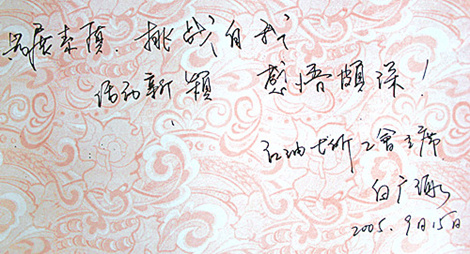 展素质. 挑战自我
活动新颖 感悟颇深!
油 所工會主席
白广
2005.9月15日